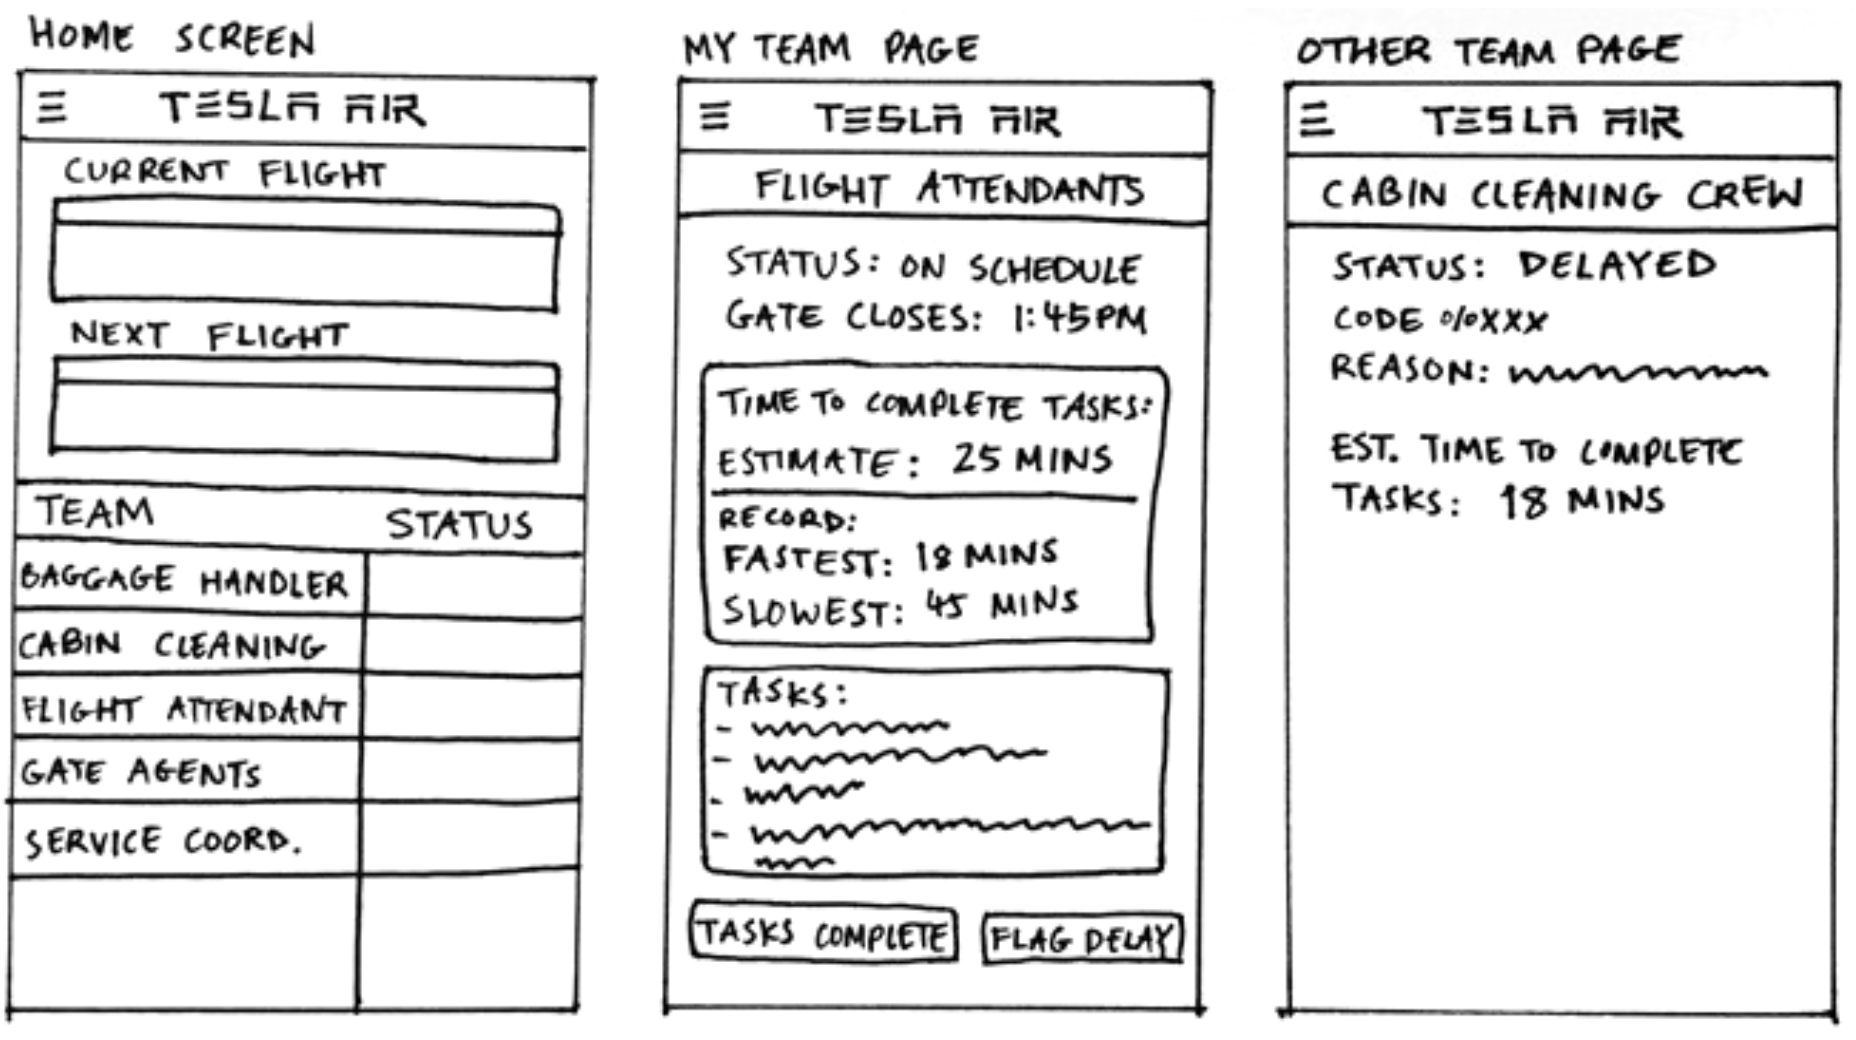 HOME SCREEN
TESLA AIR
CURRENT FLIGHT
NEXT FLIGHT
TEAM STATUS
BAGGAGE HANDLER
CABIN CLEANING
FLIGHT ATTENDANT
GATE AGENTS
SERVICE COORD.
MY TEAM PAGE
TESLA AIR
FLIGHT ATTENDANTS
STATUS: ON SCHEDULE
GATE CLOSES: 1:45PM
TIME TO COMPLETE TASKS:
ESTIMATE: 25 MINS
RECORD:
FASTEST: 18 MINS
SLOWEST: 45 MINS
TASKS:
TASKS COMPLETE
FLAG DELAY
OTHER TEAM PAGE
TESLA AIR
CABIN CLEANING CREW
STATUS: DELAYED
CODE %XXX
REASON:
EST. TIME TO COMPLETE
TASKS: 18 MINS